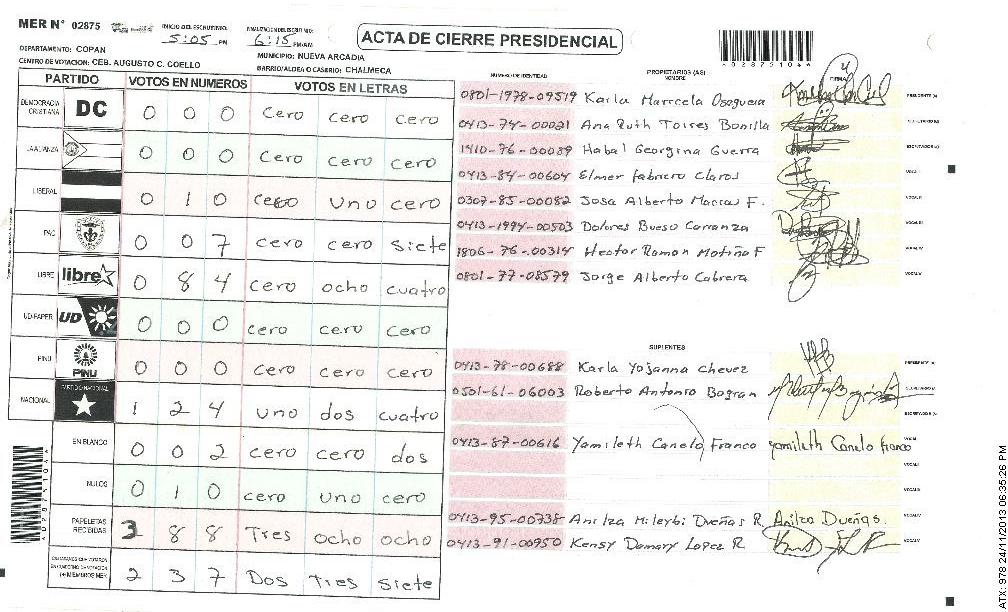 MER N° 02875
INICIO DEL ESCRUTINIO: 5:05 PM
FINALIZACION ESCRUTINIO: 6:15 PM/AM
ACTA DE CIERRE PRESIDENCIAL
*02875104*
DEPARTAMENTO: COPAN
MUNICIPIO: NUEVA ARCADIA
CENTRO DE VOTACION: CEB. AUGUSTO C. COELLO
BARRIO/ALDEA O CASERIO: CHALMECA
PARTIDO VOTOS EN NUMEROS VOTOS EN LETRAS
DEMOCRACIA CRISTIANA DC 0 0 0 cero cero cero
LA ALIANZA 0 0 0 cero cero cero
LIBERAL 0 1 0 cero uno cero
PAC 0 0 7 cero cero siete
LIBRE libre 0 8 4 cero ocho cuatro
UD-FAPER UD 0 0 0 cero cero cero
PINU PINU 0 0 0 cero cero cero
NACIONAL PARTIDO NACIONAL 1 2 4 uno dos cuatro
EN BLANCO 0 0 2 cero cero dos
NULOS 0 1 0 cero uno cero
PAPELETAS RECIBIDAS 3 8 8 Tres ocho ocho
(+ MIEMBROS MER) 2 3 7 Dos Tres siete
NUMERO DE IDENTIDAD PROPIETARIOS (AS) NOMBRE FIRMA
0801-1978-09519 Karla Marcela Osoguera PRESIDENTE (A)
0413-74-00021 Ana Ruth Torres Bonilla SECRETARIO (A)
1410-76-00089 Habal Georgina Guerra ESCRUTADOR (A)
0413-84-00604 Elmer fabricio Claros VOCAL I
0307-85-00082 Josa Alberto Marcas F. VOCAL II
0413-1994-00503 Dolores Bueso Carranza VOCAL III
1806-76-00314 Hector Ramon Motiño F VOCAL IV
0801-77-08579 Jorge Alberto Cabrera VOCAL V
SUPLENTES
0413-78-00688 Karla Yojanna Chevez PRESIDENTE (A)
0501-61-06003 Roberto Antonio Bogran SECRETARIO (A)
ESCRUTADOR (A)
0413-87-00616 Yamileth Canelo Franco yamileth Canelo franco VOCAL I
VOCAL II
VOCAL III
0413-95-00738 Anilza Mileybi Dueñas R. Anilza Dueñas. VOCAL IV
0413-91-00950 Kensy Damary Lopez R. VOCAL V
ATX: 978 24/11/2013 06:35:26 PM